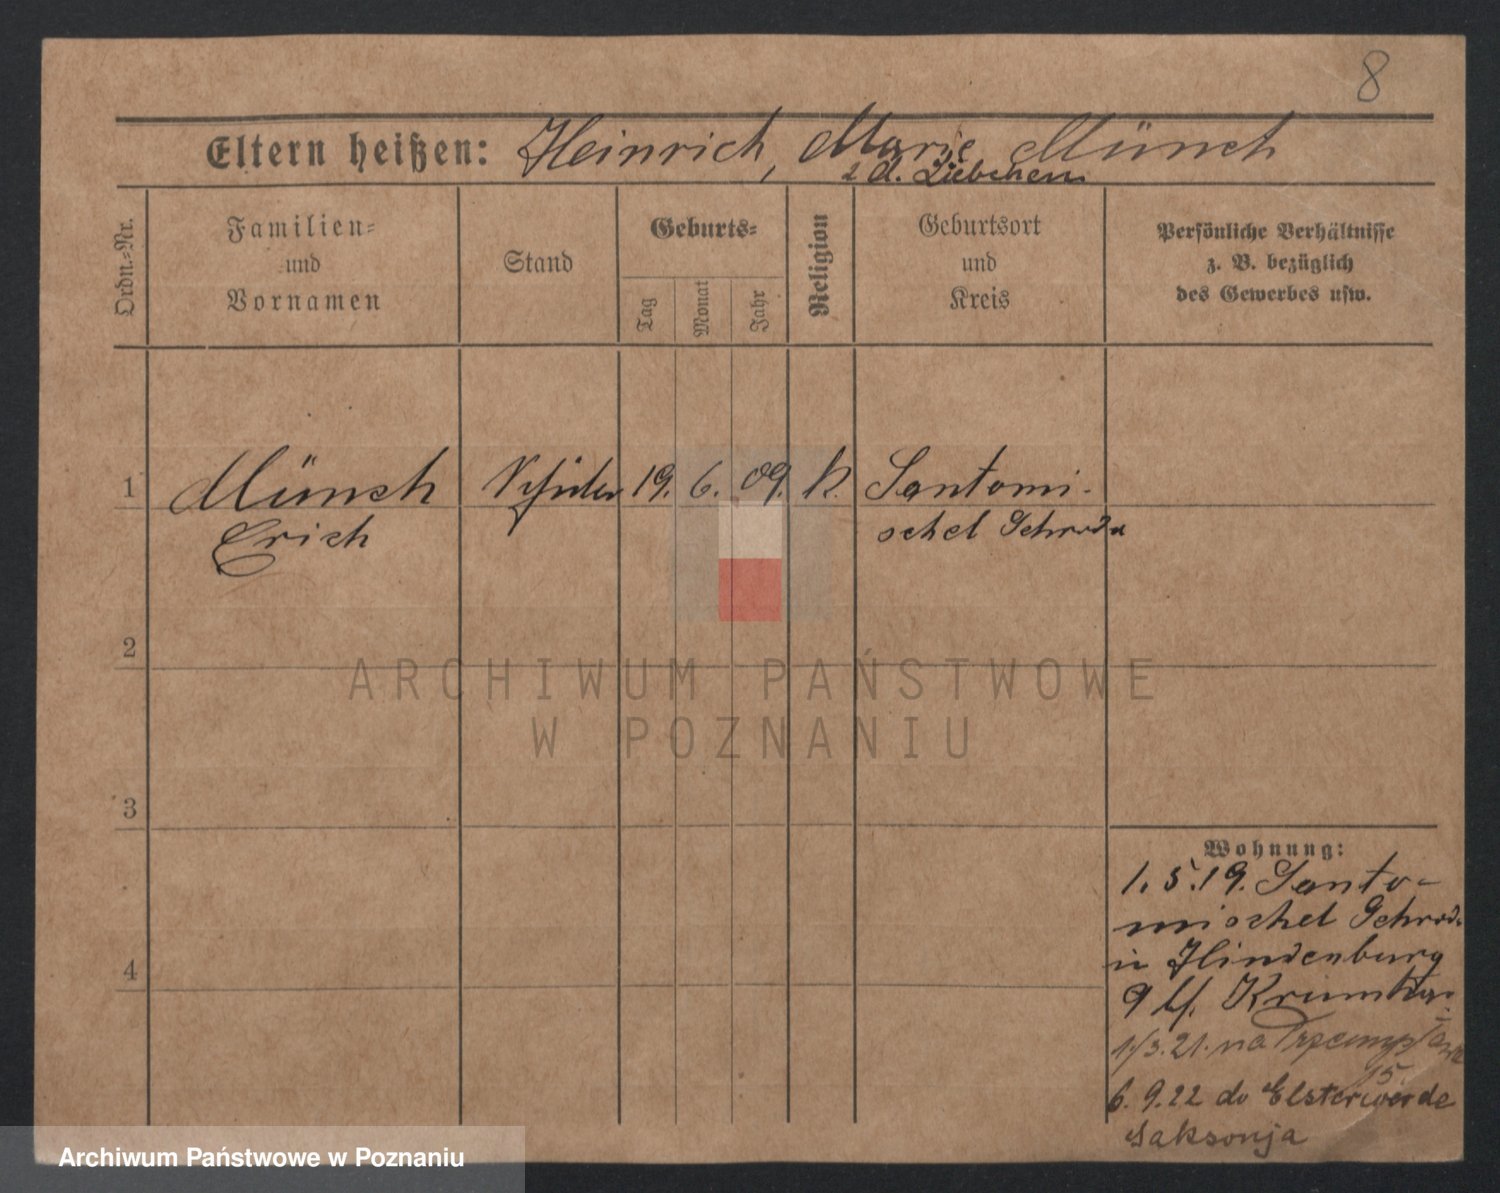 8
Eltern heißen: Heinrich, Marie Münch
d. Liebchen
Ordn.-Nr.
Familien-
und
Vornamen
Stand
Geburts-
Tag
Monat
Jahr
Religion
Geburtsort
und
Kreis
Persönliche Verhältnisse
z. B. bezüglich
des Gewerbes usw.
1
Münch
Erich
Schüler
19. 6. 09. k.
Santomi-
schel Schroda
2
3
4
Wohnung:
1.5.19. Santo-
mischel Schroda
in Hindenburg
9 bf.
1/3.21. na Przemysłowa
15.
6.9.22 do Elsterwerde
Saksonja
ARCHIWUM PAŃSTWOWE
W POZNANIU
Archiwum Państwowe w Poznaniu